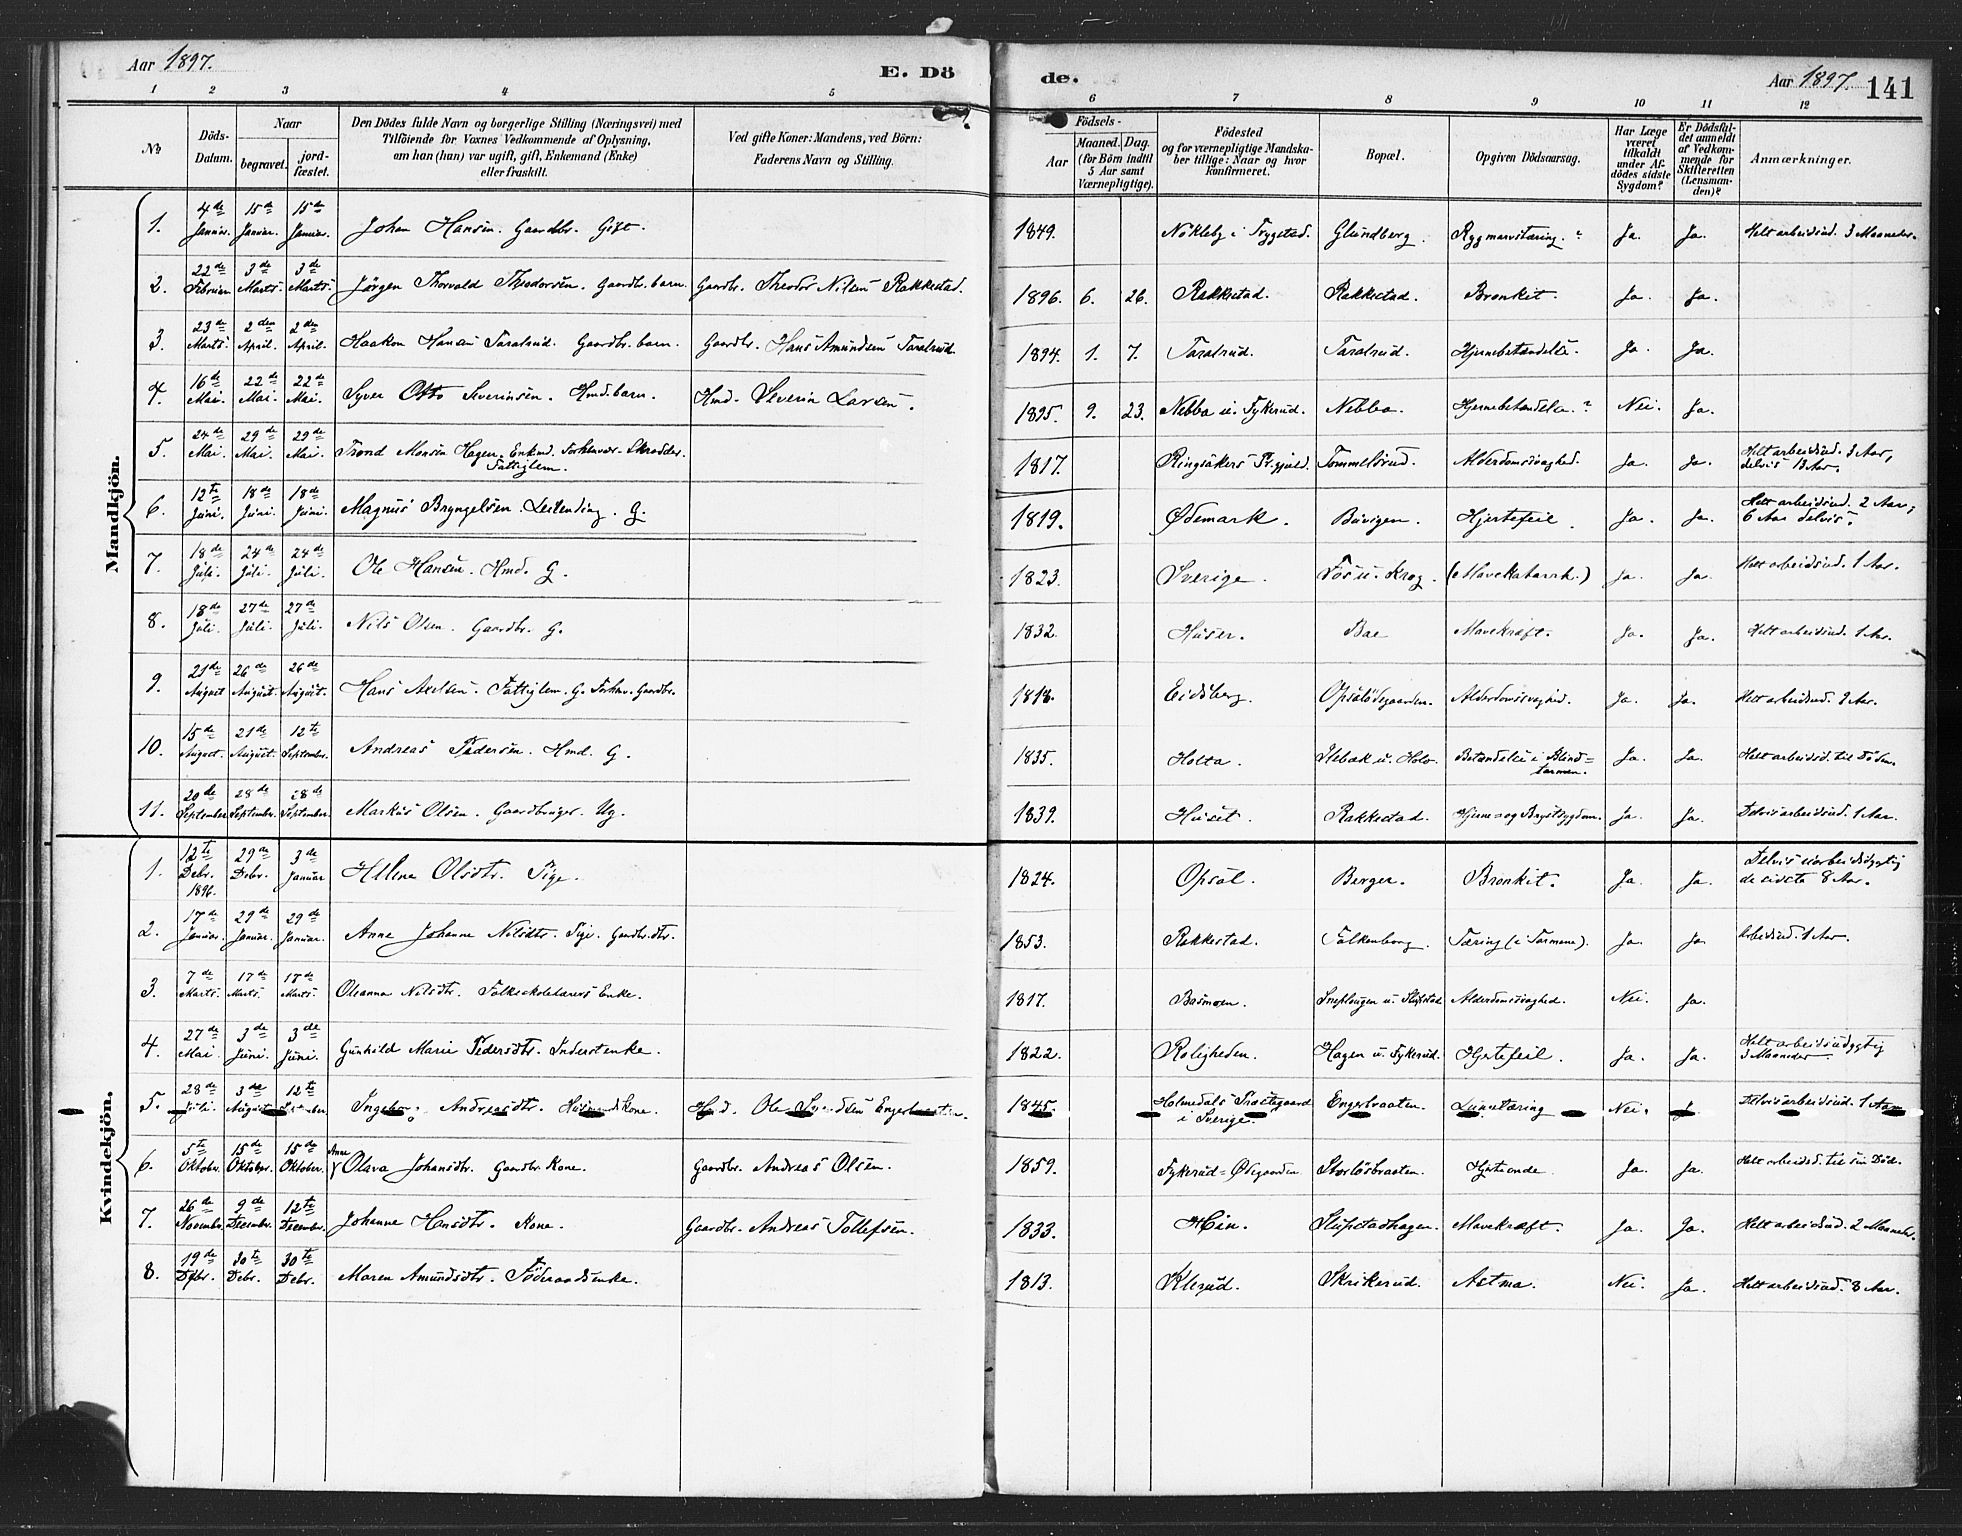 Aar 1897.
E. Dö
de.
Aar 1897.
141
1 2 3 4 5 6 7 8 9 10 11 12
No
Döds-Datum.
Naar
begravet.
jord-fæstet.
Den Dödes fulde Navn og borgerlige Stilling (Næringsvei) med
Tilföiende for Voxnes Vedkommende af Oplysning,
om han (hun) var ugift, gift, Enkemand (Enke)
eller fraskilt.
Ved gifte Koner: Mandens, ved Börn:
Faderens Navn og Stilling.
Födsels-
Aar
Maaned. Dag.
(for Börn indtil
5 Aar samt
Værnepligtige).
Födested
og for værnepligtige Mandska-
ber tillige: Naar og hvor
konfirmeret.
Bopæl.
Opgiven Dödsaarsag.
Har Læge
været
tilkaldt
under Af-
dödes sidste
Sygdom?
Er Dödsfal-
det anmeldt
af Vedkom-
mende for
Skifteretten
(Lensman-
den)?
Anmærkninger.
Mandkjön.
1. 4de Januar. 15de Januar. 15de Januar. Johan Hansen. Gaardbr. Gift. 1849. Nökleby i Trygstad. Glundberg. Rygmarvstæring. ? Ja. Ja. Helt arbeidsud. 3 Maaneder.
2. 22de Februar. 3de Marts. 3de Marts. Jørgen Thorvald Theodorsen. Gaardbr. barn. Gaardbr. Theodor Nilsen Rakkestad. 1896. 6. 26. Rakkestad. Rakkestad. Bronkit. Ja. Ja.
3. 23de Marts. 2den April. 2den April. Haakon Hansen Taralrud. Gaardbr. barn. Gaardbr. Hans Amundsen Taralrud. 1894. 1. 7. Taralrud. Taralrud. Hjernebetændelse. Ja. Ja.
4. 16de Mai. 22de Mai. 22de Mai. Syver Otto Severinsen. Hmd. barn. Hmd. Severin Larsen. 1895. 9. 23. Nebba u. Tykerud. Nebba. Hjernebetændelse. ? Nei. Ja.
5. 24de Mai. 29de Mai. 29de Mai. Trond Monsen Hagen. Enkmd. Forhenvær. Skrædder. Fattiglem. 1817. Ringsakers Pr.gjæld. Tommelsrud. Alderdomssvaghed. Ja. Ja. Helt arbeidsud. 3 Aar, delvis 13 Aar.
6. 12te Juni. 18de Juni. 18de Juni. Magnus Bryngelsen. Leilending. G. 1819. Ødemark. Buvigen. Hjertefeil. Ja. Ja. Helt arbeidsud. 2 Aar, 6 Aar delvis.
7. 18de Juli. 24de Juli. 24de Juli. Ole Hansen. Hmd. G. 1823. Sverige. Fos u. Krog. (Mavekatarrh.) Ja. Ja. Helt arbeidsud. 1 Aar.
8. 18de Juli. 27de Juli. 27de Juli. Nils Olsen. Gaardbr. G. 1832. Huser. Bae Mavekræft. Ja. Ja. Helt arbeidsud. 1 Aar.
9. 21de August 26de August. 26de August. Hans Axelsen. Fattiglem. G. Forhenv. Gaardbr. 1818. Eidsberg. Opsalødegaarden. Alderdomssvaghed. Ja. Ja. Helt arbeidsud. Aar.
10. 15de August. 21de August. 12te September. Andreas Pedersen. Hmd. G. 1835. Holta. Ilebæk u. Holv. Betændelse i Blind=tarmen. Ja. Ja. Helt arbeidsd. til Døden.
11. 20de September 28de September. 28de September. Markus Olsen. Gaardbruger. Ug. 1839. Huset. Rakkestad. Hjerne= og Brystsygdom. Ja. Ja. Delvis arbeidsud. 1 Aar.
Kvindekjön.
1. 12te Debr. 1896. 29de Debr. 3de Januar Helene Olsdtr. Pige. 1824. Opsal. Berger. Bronkit. Ja. Ja. Delvis uarbeidsdygtig de sidste 8 Aar.
2. 17de Januar. 29de Januar. 29de Januar. Anne Johanne Nilsdtr. Pige. Gaardbr. dtr. 1853. Rakkestad. Falkenborg. Tæring (i Tarmene). Ja. Ja. Arbeidsud. 1 Aar.
3. 7de Marts. 17de Marts. 17de Marts. Oleanna Nilsdtr. Folkeskolelærers Enke. 1817. Basmoen. Sneplougen u. Slupstad Alderdomssvaghed. Nei. Ja.
4. 27de Mai. 3de Juni. 3de Juni. Gunhild Marie Pedersdtr. Inderstenke. 1822. Roligheden. Hagen u. Tykerud. Hjertefeil. Ja. Ja. Helt arbeidsudygtig 3 Maaneder
5. 28de Juli. 3de August 12te September. Ingeborg Andreasdtr. Husmands Kone. Hmd. Ole Svendsen Engerbraaten. 1845. Holmedals Præstegaard i Sverige. Engerbraaten. Lungetæring Nei. J Delvis arbeidsud. 1 Aar
6. 5te Oktober. 15de Oktober. 15de Oktober. Anne Olava Johansdtr. Gaardbr. Kone. Gaardbr. Andreas Olsen. 1859. Tykerud=Ødegaarden Storløsbraaten. Hjerteonde. Ja. Ja. Helt arbeidsd. til sin Død.
7. 26de Novembr. 9de Desember. 12te Desember. Johanne Hansdtr. Kone. Gaardbr. Andreas Tollefsen. 1833. Hen. Slupstadhagen. Mavekræft. Ja. Ja. Helt arbeidsud. 2 Maaneder.
8. 19de Debr. 30te Debr. 30te Debr. Maren Amundsdtr. Föderaadsenke. 1813. Klerud. Skrikerud. Astma. Nei. Ja. Helt arbeidsud. 8 Aar.